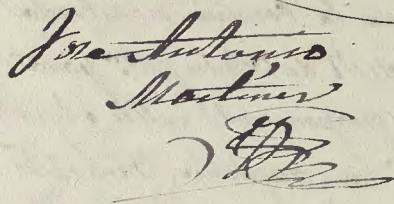 Jose Antonio
Martinez